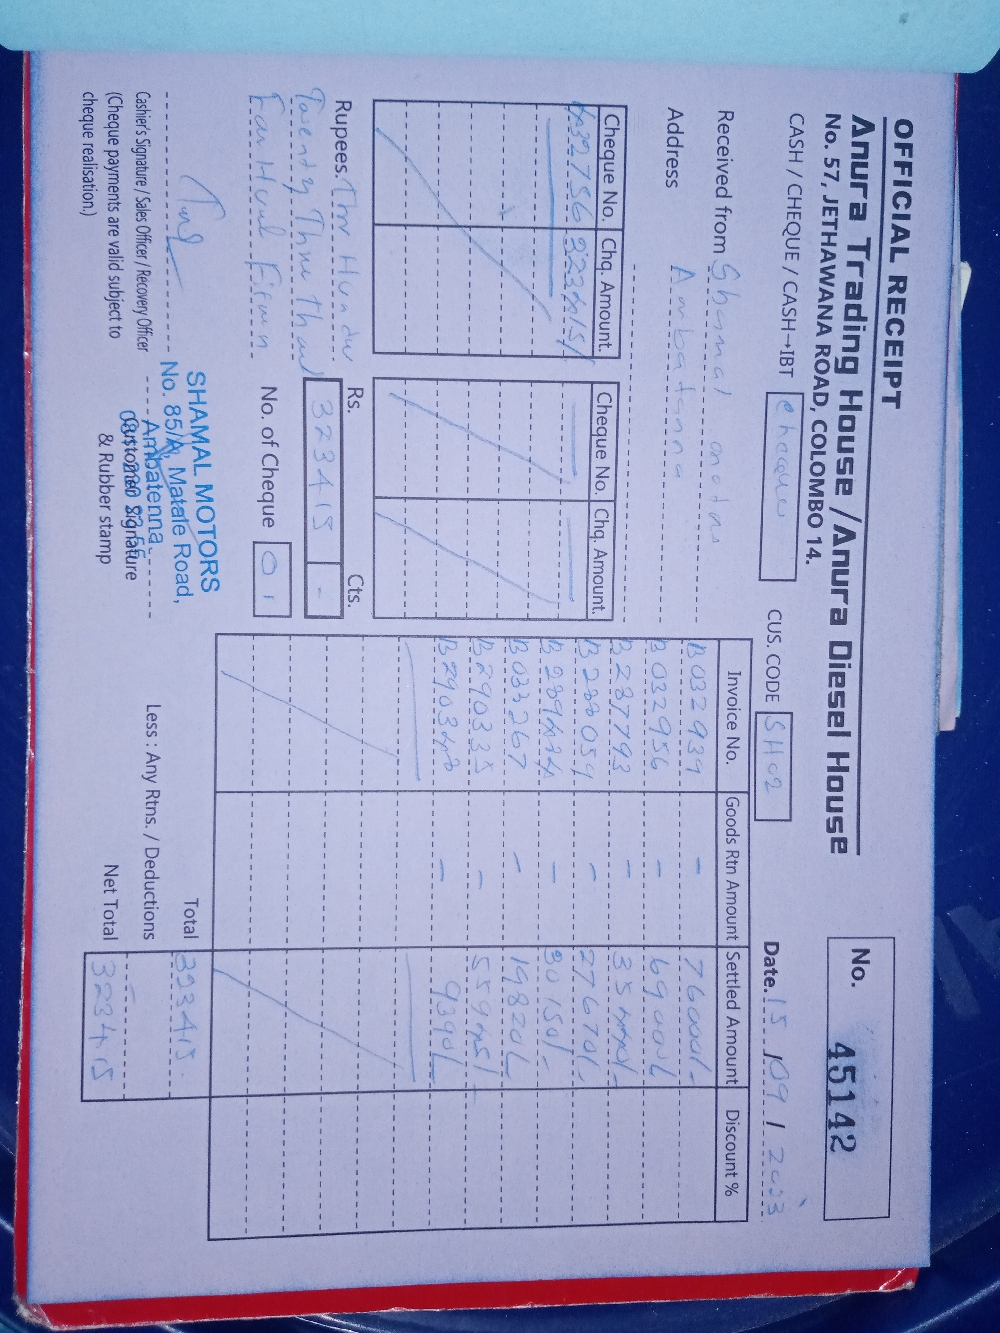 OFFICIAL RECEIPT
Anura Trading House / Anura Diesel House
No. 57, JETHAWANA ROAD, COLOMBO 14.
No. 45142
CASH / CHEQUE / CASH→IBT Cheque
CUS. CODE SH02
Date. 15 / 09 / 2023
Received from Shamal motors
Address Ambatenna
Cheque No. Chq. Amount. Cheque No. Chq. Amount.
432756 323415/
Invoice No. Goods Rtn Amount Settled Amount Discount %
B032939 - 76000/-
B032956 - 69000/-
B287793 - 35440/-
B288059 - 27670/-
B289424 - 30150/-
B033267 - 19820/-
B290335 - 55945/-
B290342 - 9390/-
Rupees. Three Hundred
Twenty Three thousand
Four Hund Fifteen
Rs. Cts.
323415 -
No. of Cheque 01
Total 323415
Less : Any Rtns. / Deductions -
Net Total 323415
Cashier's Signature / Sales Officer / Recovery Officer
(Cheque payments are valid subject to
cheque realisation.)
SHAMAL MOTORS
No. 85/A, Matale Road,
Ambatenna.
Customer Signature
& Rubber stamp